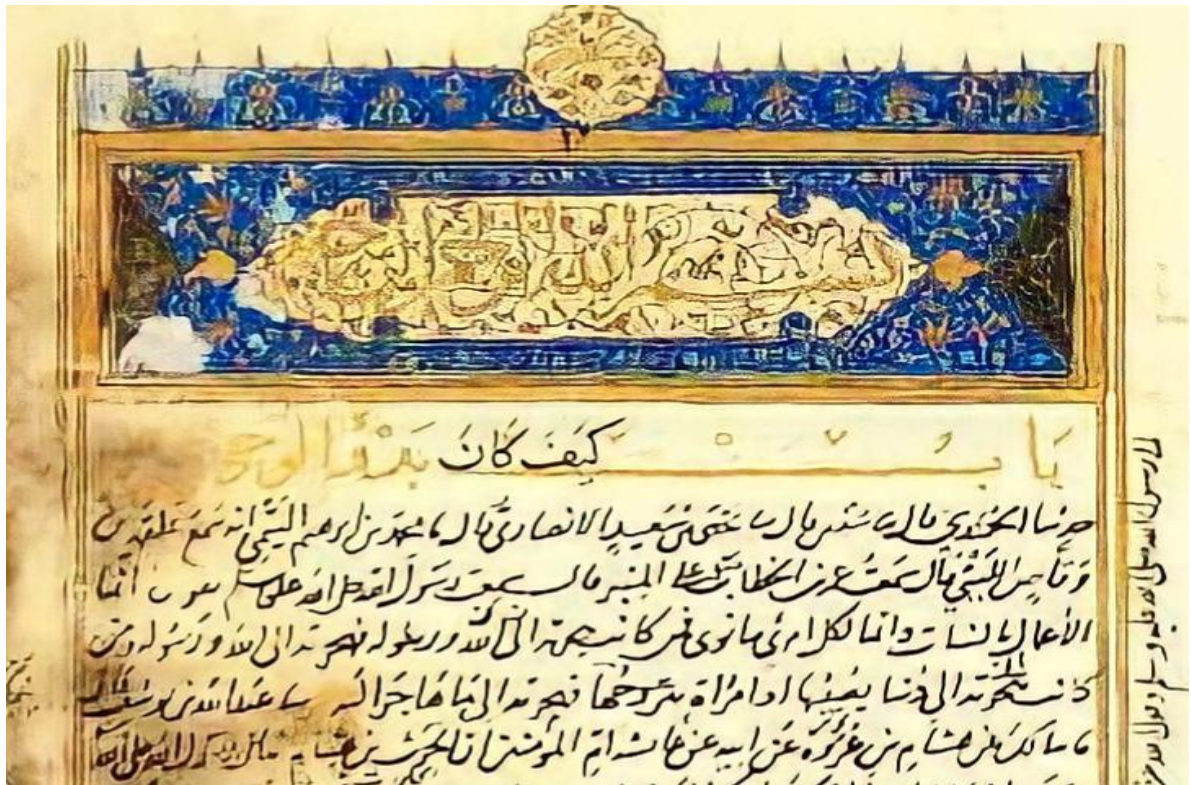 باب كَيْفَ كَانَ بَدْؤُ الوحي
حدثنا الحميدي قال سا سفين قال سا يحيى بن سَعيدٍ الانصاريُّ قال سا محمد بن ابرهيم التيمي انه سمع علقمة بن
وقاص الليثي يقال سمعت عمر بن الخطاب على المنبر قال سمعت رسول الله صلى الله عليه وسلم يقول انما
الأعمال بالنيات وانما لكل امرئ ما نوى فمن كانت هجرته الى الله ورسوله فهجرته الى الله ورسوله ومن
كانت هجرته الى دنيا يصيبها او امراة يتزوجها فهجرته الى ما هاجر اليه سا عبد الله بن يوسف
سا مالك عن هشام بن عروة عن ابيه عن عائشة ام المؤمنين ان الحرث بن هشام
رسول الله صلى الله عليه وسلم وقول الله